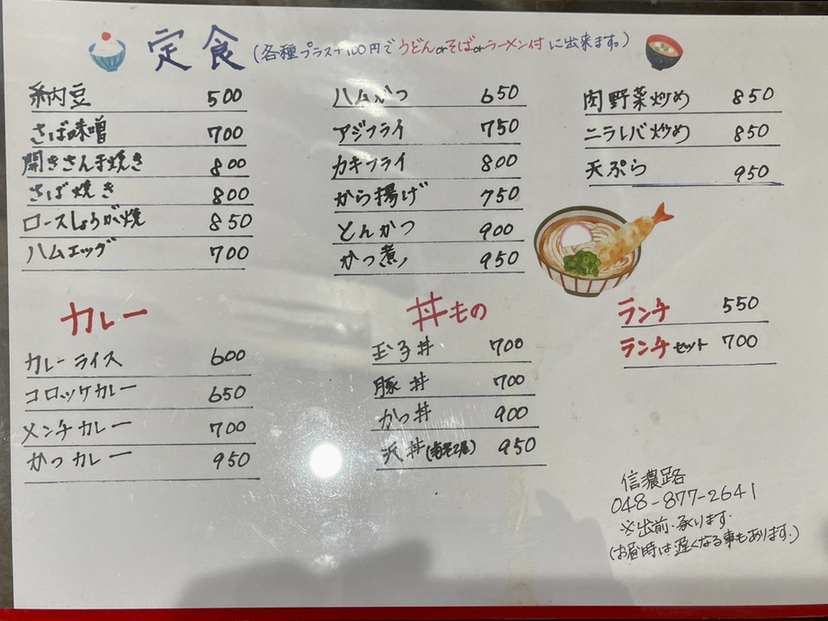 定食(各種プラス+100円でうどんorそばorラーメン付に出来ます。)
納豆 500
さば味噌 700
開きさんま焼き 800
さば焼き 800
ロースしょうが焼 850
ハムエッグ 700
ハムかつ 650
アジフライ 750
カキフライ 800
から揚げ 750
とんかつ 900
かつ煮 950
肉野菜炒め 850
ニラレバ炒め 850
天ぷら 950
カレー
カレーライス 600
コロッケカレー 650
メンチカレー 700
かつカレー 950
丼もの
玉子丼 700
豚丼 700
かつ丼 900
天丼 950
ランチ 550
ランチセット 700
信濃路
048-877-2641
※出前承ります。
(お昼時は遅くなる事もあります。)